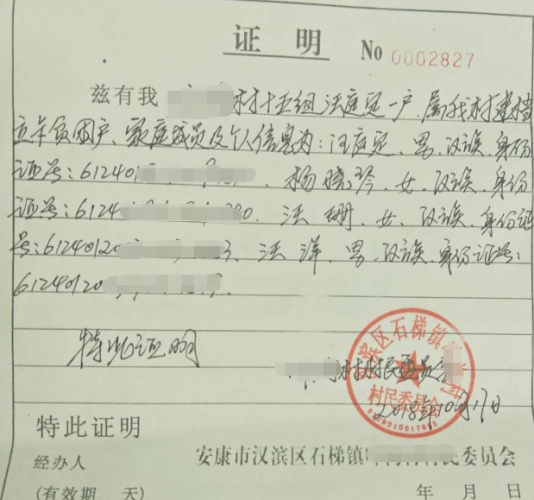 证明 No 0002827
兹有我 村十五组汪庭定一户,属我村建档
立卡贫困户、家庭成员及个人信息为:汪庭定、男、汉族、身份
证号:61240 、杨晓琴、女、汉族、身份
证号:61240 、汪珊、女、汉族、身份证
号:61240120 3、汪洋、男、汉族、身份证号:
61240120
特此证明
村村民委员会
滨区石梯镇
村民委员会
2018年10月17日
特此证明
安康市汉滨区石梯镇 民委员会
经办人
(有效期 天) 年 月 日